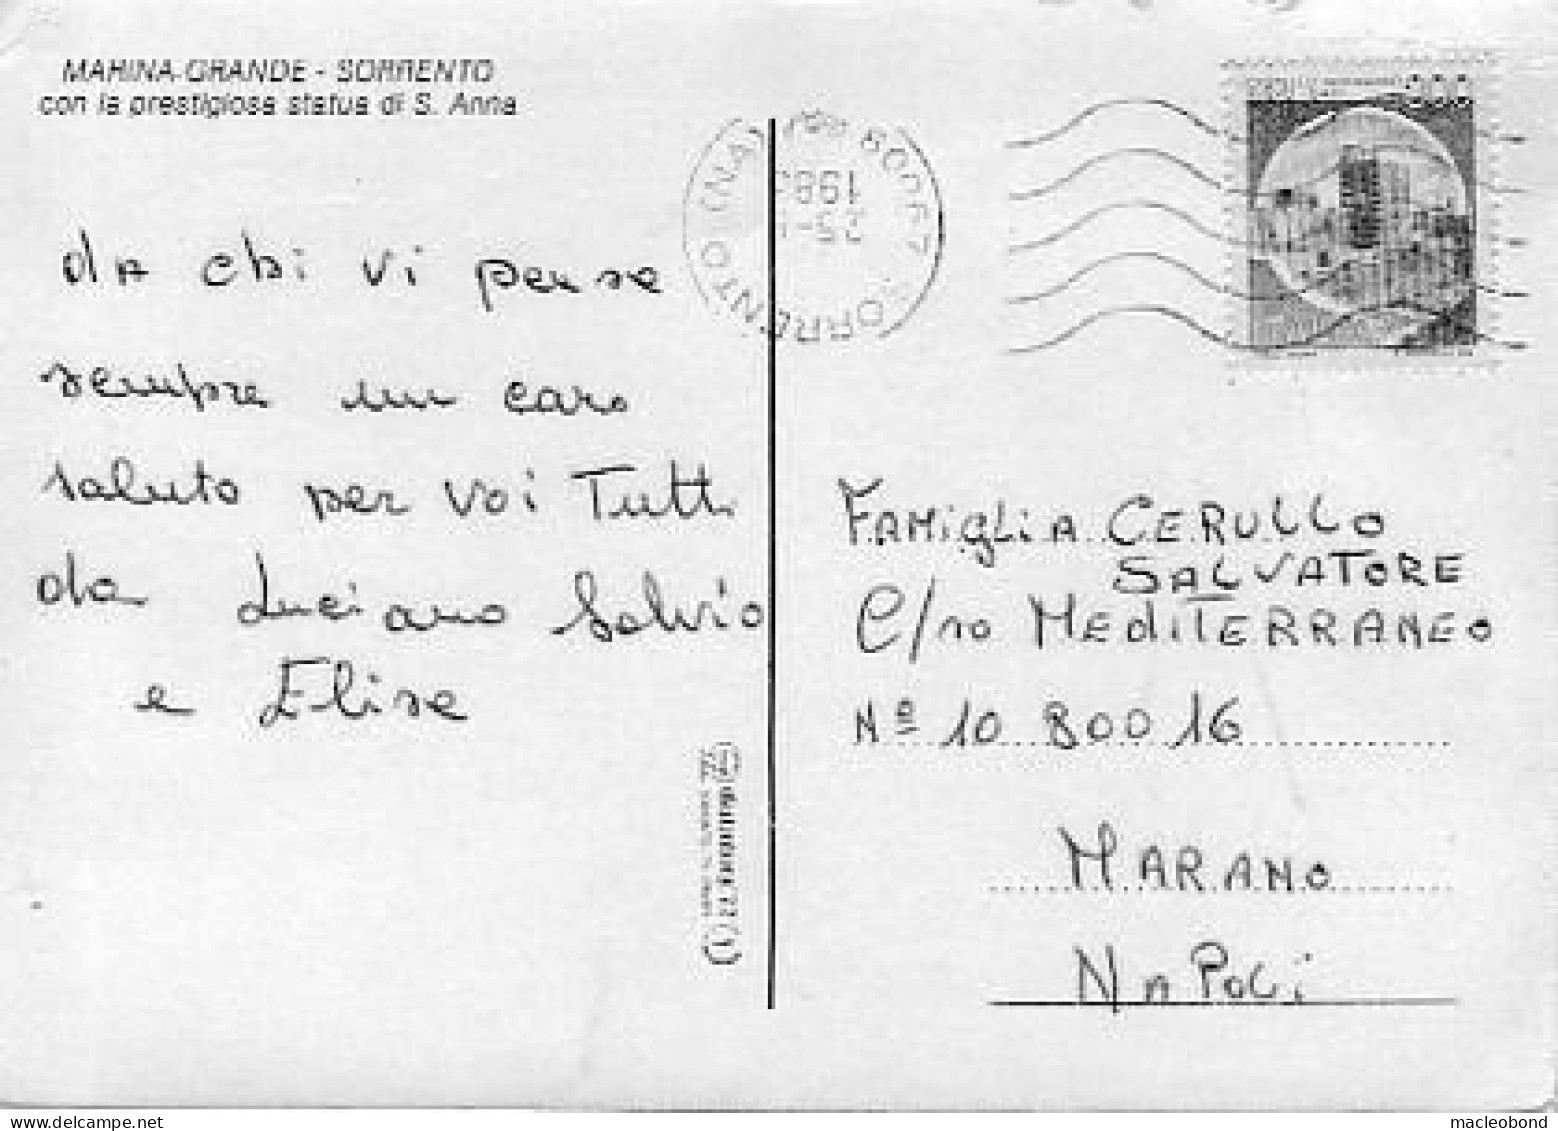 MARINA GRANDE - SORRENTO
con la prestigiosa statua di S. Anna
da chi vi pensa
sempre un caro
saluto per voi Tutti
da Luciano Salvio
e Elisa
SORRENTO (NA)
198
FAMIGLIA CERULLO
SALVATORE
C/so MEDITERRANEO
Nº 10 80016
MARANO
NAPOLI
macleobond